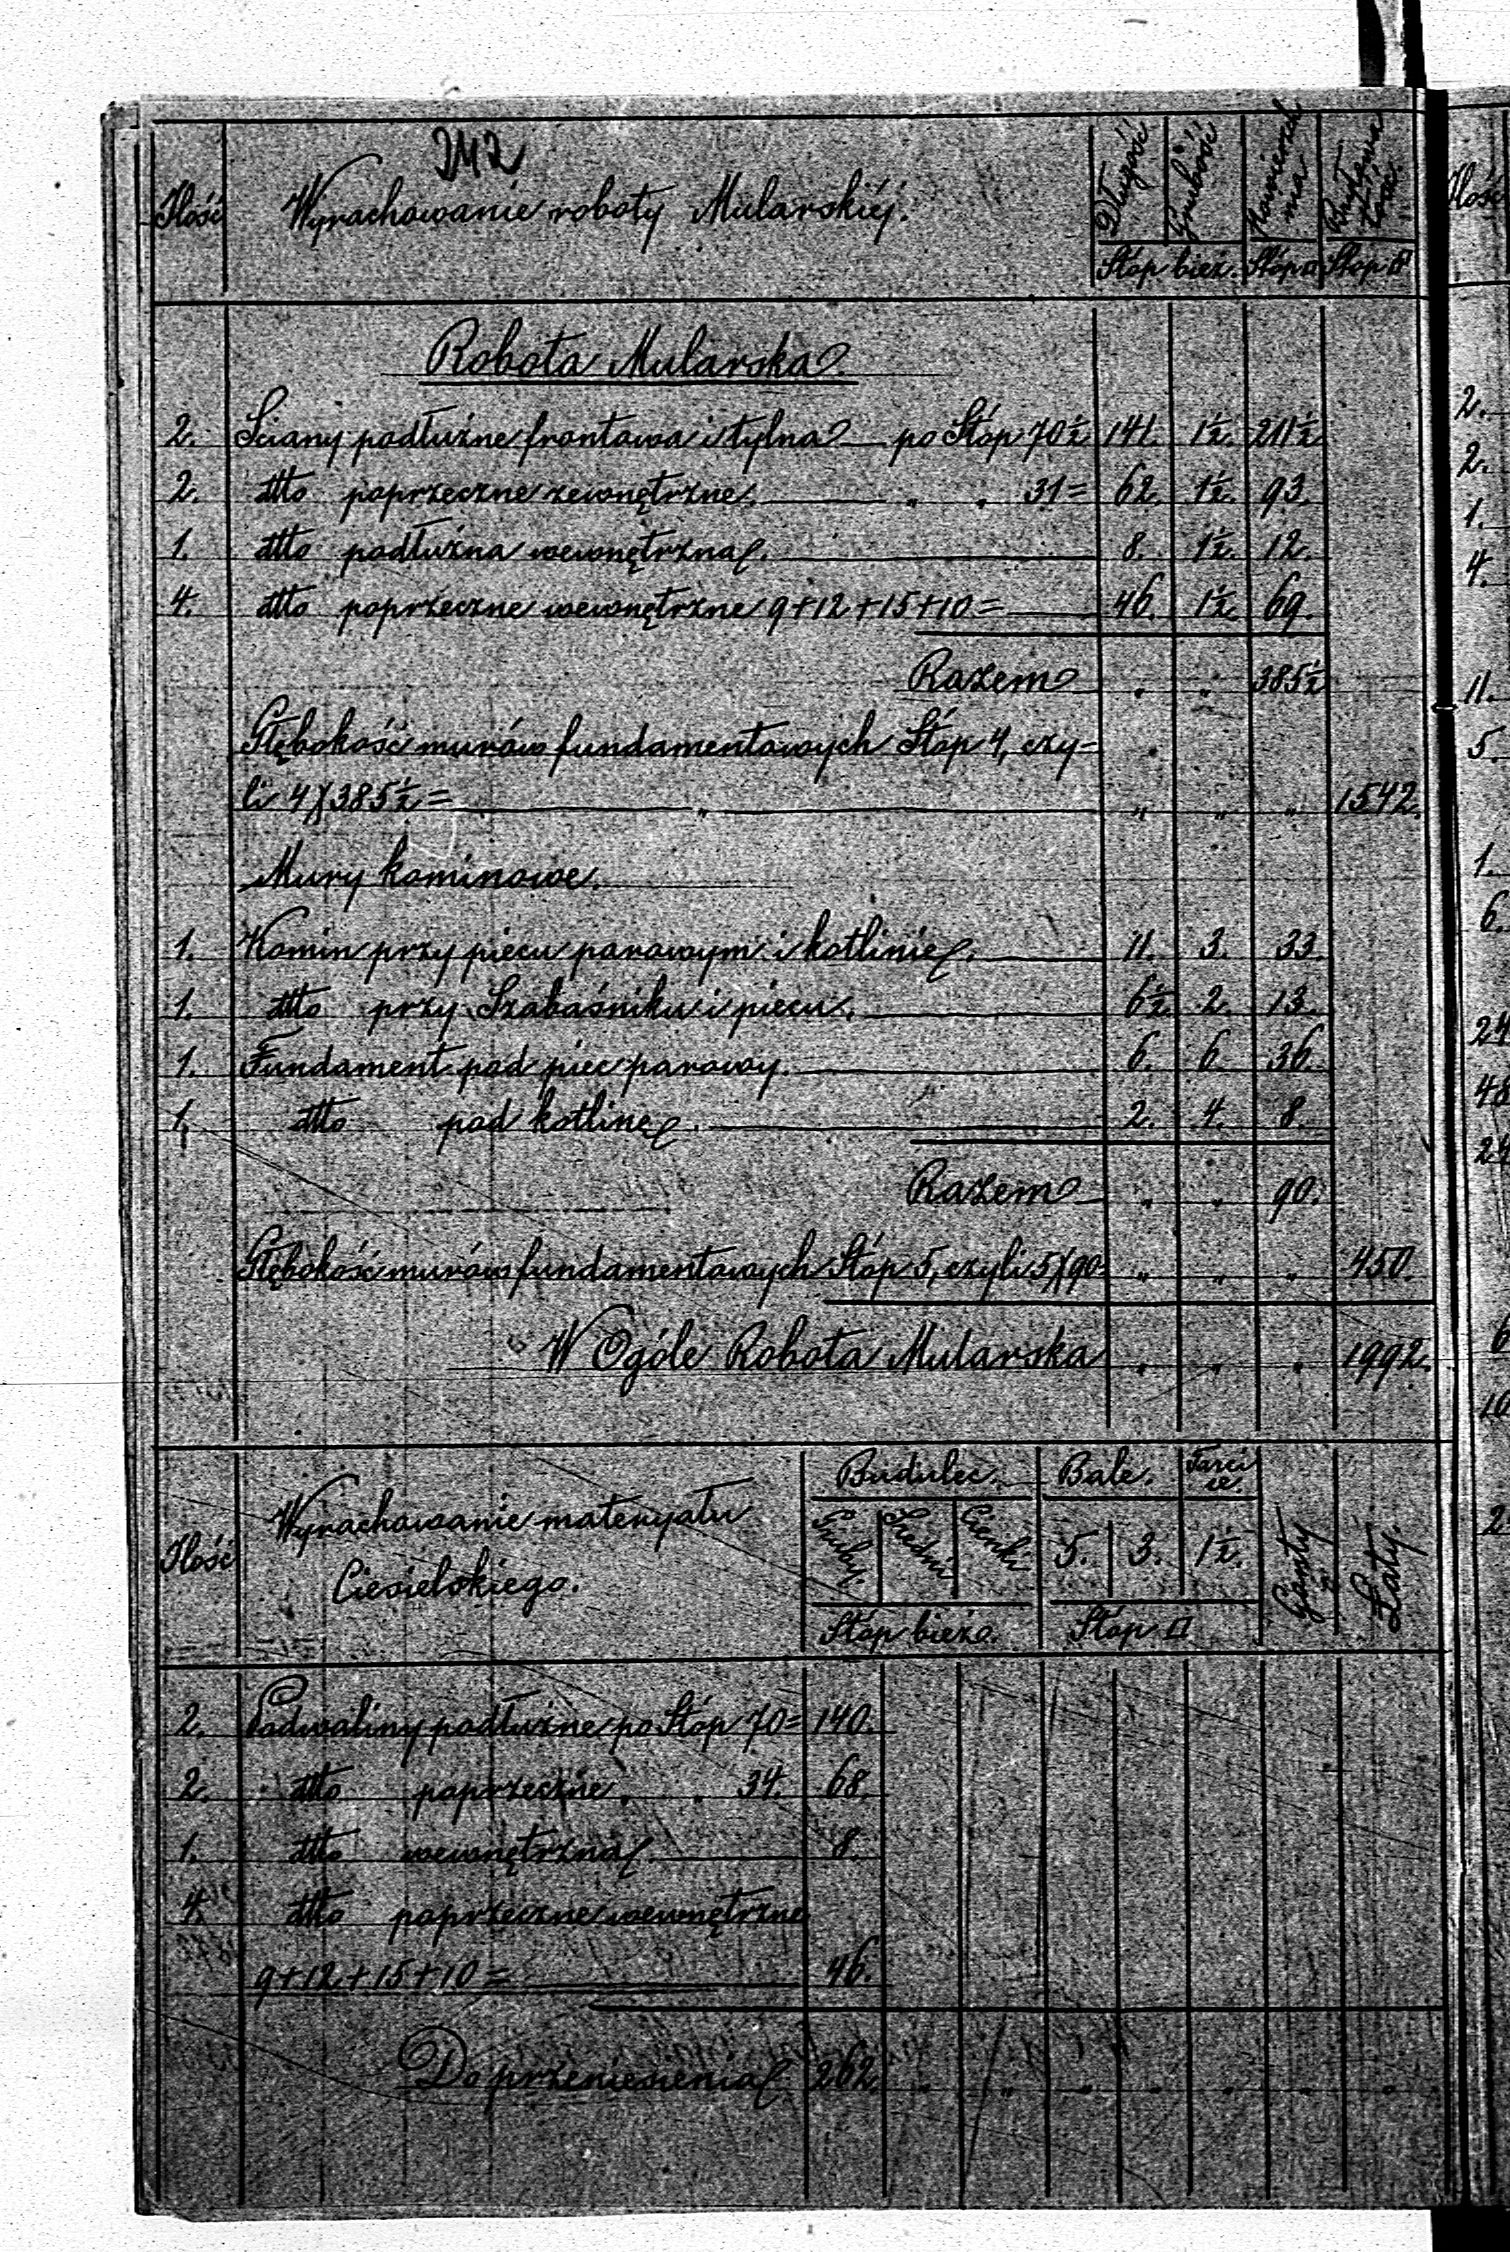 242
Ilość Wyrachowanie roboty Mularskiéj. Długość Grubość Powierzchnia
Stóp bież. Stóp □ Stop
Robota Mularska
2. Sciany podłużne frontowa i tylna po Stóp 70½ 141. 1½. 211½
2. dtto poprzeczne zewnętrzne. „ „ 31= 62. 1½. 93.
1. dtto podłużna wewnętrzna. 8. 1½. 12.
4. dtto poprzeczne wewnętrzne 9+12+15+10= 46. 1½. 69.
Razem „ „ 385½
Głębokość murów fundamentowych Stóp 4, czy-
li 4)(385½= „ „ „ „ 1542.
Mury kominowe.
1. Komin przy piecu parowym i kotlinie. 11. 3. 33.
1. dtto przy Szabaśniku i piecu. 6½. 2. 13.
1. Fundament pod piec parowy. 6. 6. 36.
1. dtto pod kotlinę. 2. 4. 8.
Razem „ „ 90.
Głębokość murów fundamentowych Stóp 5, czyli 5)(90 „ „ „ 450.
W Ogóle Robota Mularska „ „ „ 1992.
Ilość Wyrachowanie materyału Ciesielskiego. Budulec. Bale. Tarcice.
Gruby. Średni Cienki 5. 3. 1½. Gonty Łaty.
Stóp bieżo. Stóp □
2. Podwaliny podłużne po Stóp 70= 140.
2. dtto poprzeczne „ „ 34. 68.
1. dtto wewnętrzna. 8.
4. dtto poprzeczne wewnętrzne
9+12+15+10= 46.
Do przeniesienia 262. „ „ „ „ „ „ „